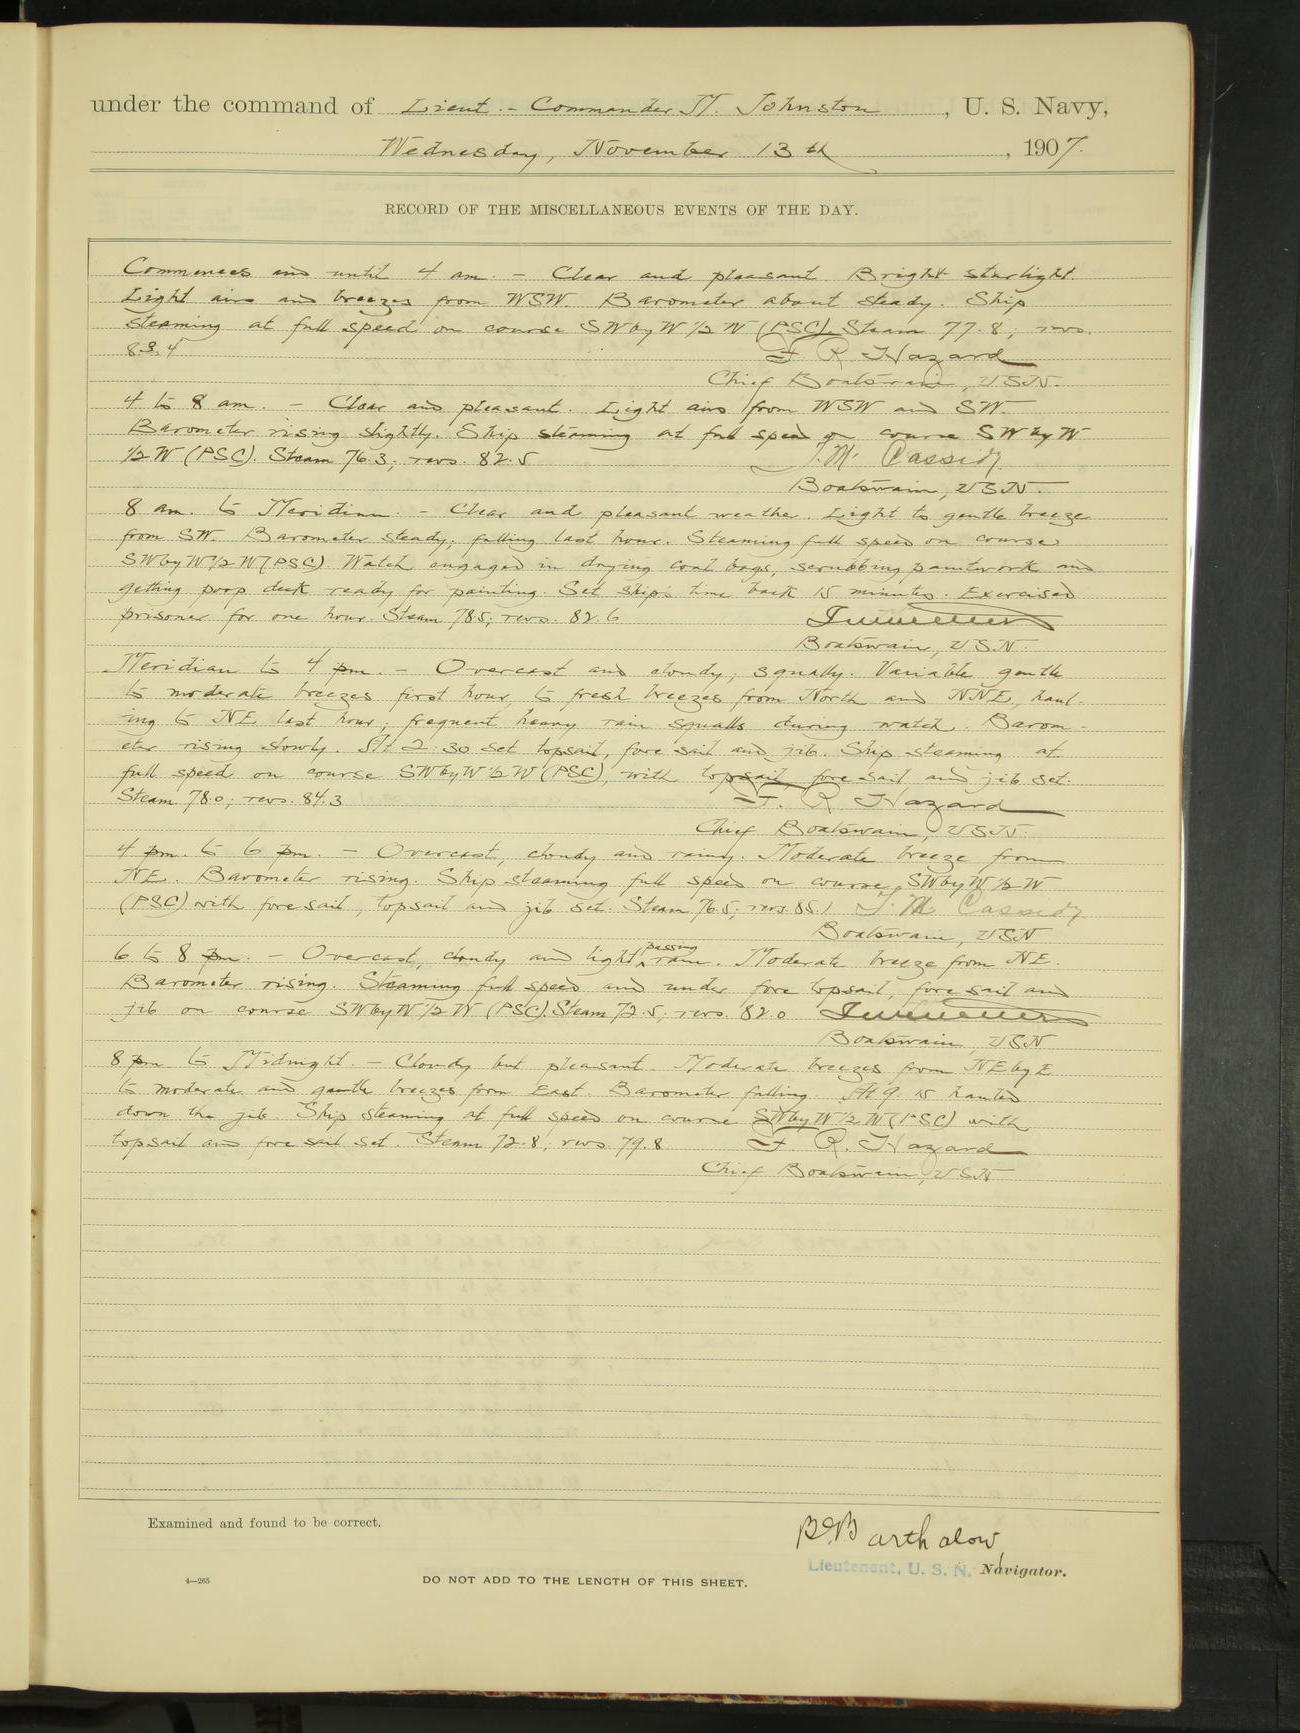 under the command of Lieut.-Commander M. Johnston, U. S. Navy,
Wednesday, November 13th, 1907.
RECORD OF THE MISCELLANEOUS EVENTS OF THE DAY.
Commences and until 4 am. - Clear and pleasant. Bright starlight.
Light airs and breezes from WSW. Barometer about steady. Ship
steaming at full speed on course SWbyW 1/2 W (PSC). Steam 77.8; revs.
83.4 F. R. Hazard
Chief Boatswain, USN.
4 to 8 am. - Clear and pleasant. Light airs from WSW and SW.
Barometer rising slightly. Ship steaming at full speed on course SW by W
1/2 W (PSC). Steam 76.3; revs. 82.5 J. M. Cassidy
Boatswain, USN.
8 am. to Meridian. - Clear and pleasant weather. Light to gentle breeze
from SW. Barometer steady; falling last hour. Steaming full speed on course
SWbyW 1/2 W (PSC). Watch engaged in drying coal bags, scrubbing paintwork and
getting poop deck ready for painting. Set ship's time back 15 minutes. Exercised
prisoner for one hour. Steam 78.5; revs. 82.6
Boatswain, USN.
Meridian to 4 pm. - Overcast and cloudy, squally. Variable gentle
to moderate breezes first hour, to fresh breezes from North and NNE, haul-
ing to NE last hour; frequent heavy rain squalls during watch. Barom-
eter rising slowly. At 2:30 set topsail, fore sail and jib. Ship steaming at
full speed on course SWbyW 1/2 W (PSC), with topsail, fore sail and jib set.
Steam 78.0; revs. 84.3 F. R. Hazard
Chief Boatswain, USN.
4 pm. to 6 pm. - Overcast, cloudy and rainy. Moderate breeze from
NE. Barometer rising. Ship steaming full speed on course, SWbyW 1/2 W
(PSC) with fore sail, topsail and jib set. Steam 76.5; revs. 85.1 J. M. Cassidy
Boatswain, USN
6 to 8 pm. - Overcast, cloudy and light passing rain. Moderate breeze from NE.
Barometer rising. Steaming full speed and under fore topsail, fore sail and
jib on course SWbyW 1/2 W (PSC). Steam 72.5; revs. 82.0
Boatswain, USN
8 pm. to Midnight. - Cloudy but pleasant. Moderate breezes from NEbyE
to moderate and gentle breezes from East. Barometer falling. At 9:15 hauled
down the jib. Ship steaming at full speed on course SWbyW 1/2 W (PSC) with
topsail and fore sail set. Steam 72.8; revs. 79.8 F. R. Hazard
Chief Boatswain, USN
Examined and found to be correct.
Barthalow,
Lieutenant, U. S. N. Navigator.
4-265
DO NOT ADD TO THE LENGTH OF THIS SHEET.